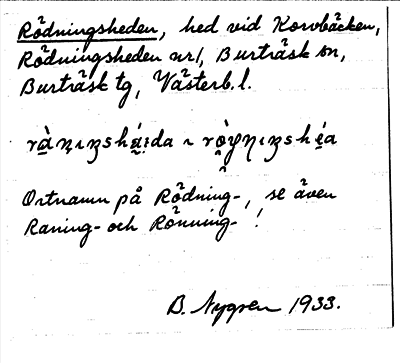 Rödningsheden, hed vid Korvbäcken,
Rödningsheden nr 1, Burträsk sn,
Burträsk tg, Västerb. l.
Ortnamn på Rödning-, se även
Raning- och Rönning- !
B. Nygren 1933.